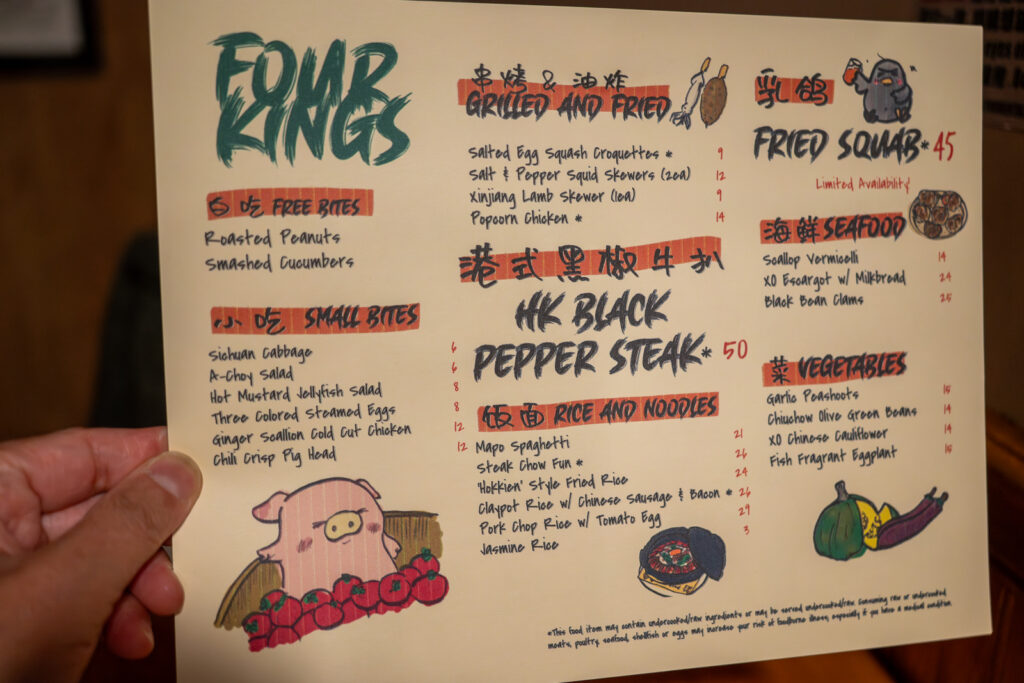 FOUR
KINGS
白吃 FREE BITES
Roasted Peanuts
Smashed Cucumbers
小吃 SMALL BITES
Sichuan Cabbage 6
A-Choy Salad 6
Hot Mustard Jellyfish Salad 8
Three Colored Steamed Eggs 8
Ginger Scallion Cold Cut Chicken 12
Chili Crisp Pig Head 12
串烤 & 油炸
GRILLED AND FRIED
Salted Egg Squash Croquettes * 9
Salt & Pepper Squid Skewers (2ea) 12
Xinjiang Lamb Skewer (1ea) 9
Popcorn Chicken * 14
港式黑椒牛扒
HK BLACK
PEPPER STEAK* 50
饭面 RICE AND NOODLES
Mapo Spaghetti 21
Steak Chow Fun * 26
'Hokkien' Style Fried Rice 24
Claypot Rice w/ Chinese Sausage & Bacon * 26
Pork Chop Rice w/ Tomato Egg 29
Jasmine Rice 3
乳鸽
FRIED SQUAB* 45
Limited Availability!
海鲜 SEAFOOD
Scallop Vermicelli 14
XO Escargot w/ Milkbread 24
Black Bean Clams 25
菜 VEGETABLES
Garlic Peashoots 15
Chiuchow Olive Green Beans 14
XO Chinese Cauliflower 14
Fish Fragrant Eggplant 15
*This food item may contain undercooked/raw ingredients or may be served undercooked/raw. Consuming raw or undercooked
meats, poultry, seafood, shellfish or eggs may increase your risk of foodborne illness, especially if you have a medical condition.